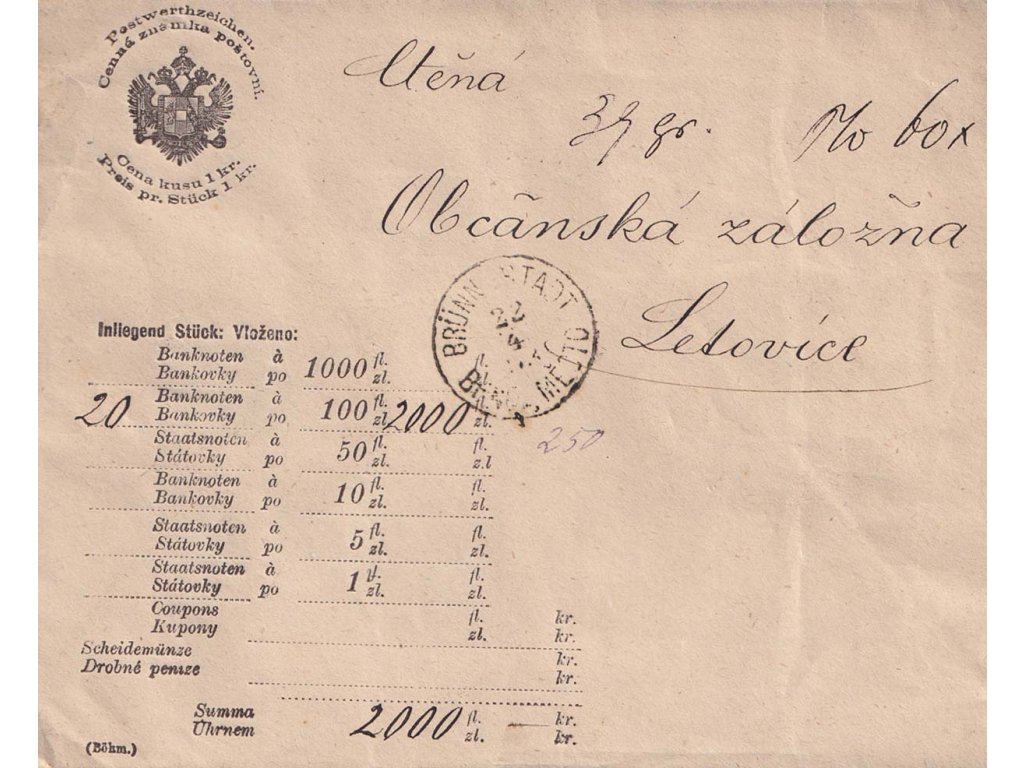 Postwerthzeichen.
Cenná známka poštovní.
Cena kusu 1 kr.
Preis pr. Stück 1 kr.
Ctěná
gr.
Občanská záložna
Letovice
BRÜNN STADT
BRNO MĚSTO
Inliegend Stück: Vloženo:
Banknoten à 1000 fl. fl.
Bankovky po zl. zl.
20 Banknoten à 100 fl. 2000 fl.
Bankovky po zl. zl.
Staatsnoten à 50 fl. fl.
Státovky po zl. z.l
250
Banknoten à 10 fl. fl.
Bankovky po zl. zl.
Staatsnoten à 5 fl. fl.
Státovky po zl. zl.
Staatsnoten à 1 fl. fl.
Státovky po zl. zl.
Coupons fl. kr.
Kupony zl. kr.
Scheidemünze kr.
Drobné peníze kr.
Summa 2000 fl. — kr.
Úhrnem zl. kr.
(Böhm.)